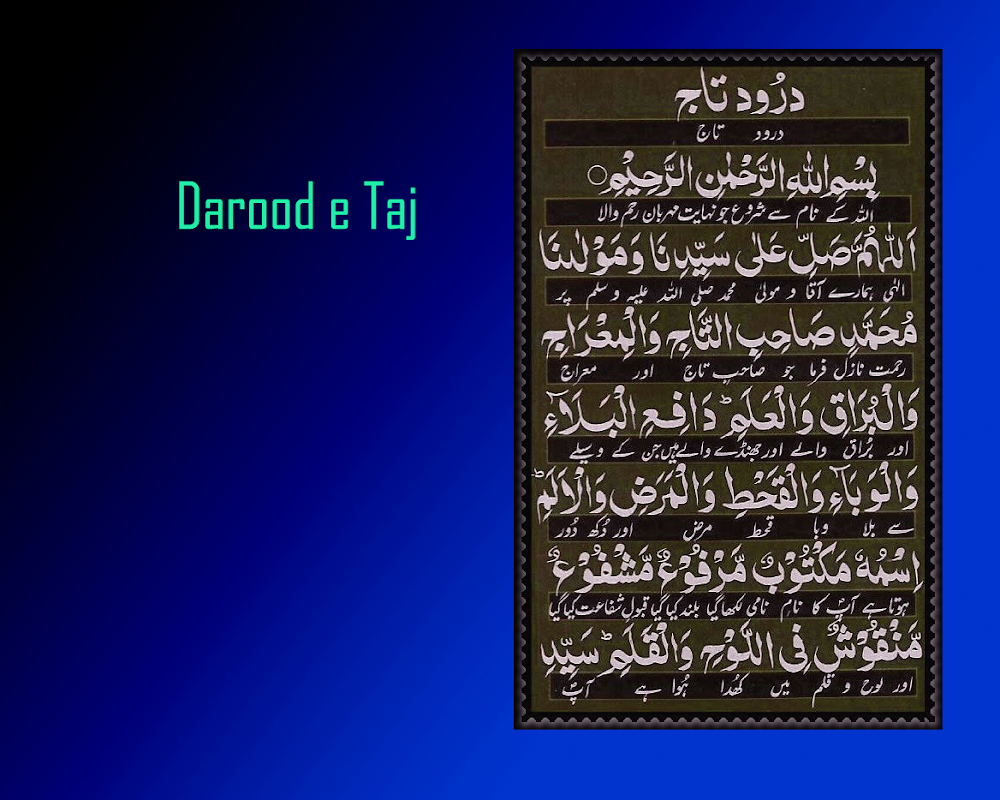 Darood e Taj
درُود تاج
درود تاج
بِسْمِ اللهِ الرَّحْمٰنِ الرَّحِيْمِ ○
اللہ کے نام سے شروع جو نہایت مہربان رحم والا
اَللّٰهُمَّ صَلِّ عَلٰى سَيِّدِنَا وَمَوْلٰىنَا
الٰہی ہمارے آقا و مولیٰ محمد صلی اللہ علیہ و سلم پر
مُحَمَّدٍ صَاحِبِ التَّاجِ وَالْمِعْرَاجِ
رحمت نازل فرما جو صاحب تاج اور معراج
وَالْبُرَاقِ وَالْعَلَمِ ؕ دَافِعِ الْبَلَآءِ
اور بُراق والے اور جھنڈے والے ہیں جن کے وسیلے
وَالْوَبَآءِ وَالْقَحْطِ وَالْمَرَضِ وَالْاَلَمِ ؕ
سے بلا وبا قحط مرض اور دُکھ دُور
اِسْمُهٗ مَكْتُوْبٌ مَّرْفُوْعٌ مَّشْفُوْعٌ
ہوتا ہے آپؐ کا نام نامی لکھا گیا بلند کیا گیا قبول شفاعت کیا گیا
مَّنْقُوْشٌ فِى اللَّوْحِ وَالْقَلَمِ ؕ سَيِّدِ
اور لوح و قلم میں کھُدا ہُوا ہے آپؐ